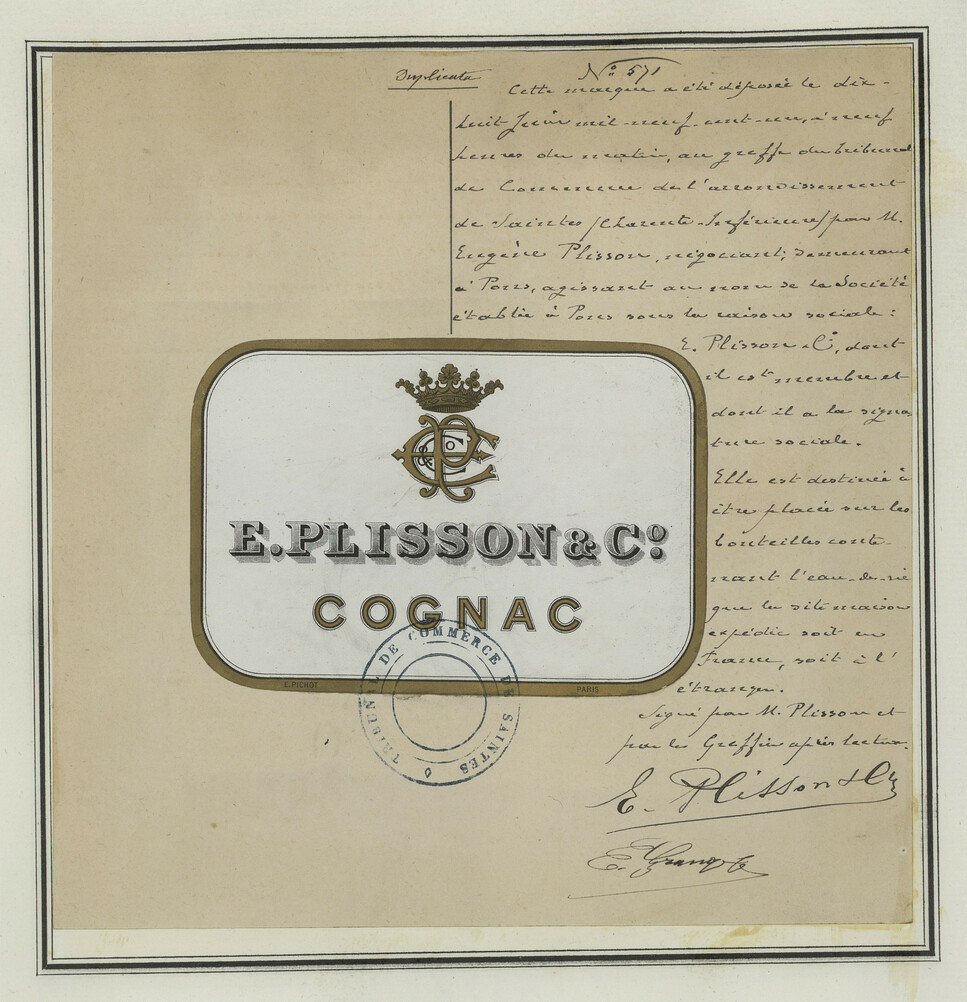 Duplicata
N° 571
Cette marque a été déposée le dix-
huit Juin mil-neuf-cent-un, à neuf
heures du matin, au greffe du tribunal
de Commerce de l'arrondissement
de Saintes (Charente-Inférieure) par M.
Eugène Plisson, négociant, demeurant
à Pons, agissant au nom de la Société
établie à Pons sous la raison sociale:
E. Plisson & Cie, dont
il est membre et
dont il a la signa-
ture sociale.
Elle est destinée à
être placée sur les
bouteilles conte-
nant l'eau-de-vie
que la dite maison
expédie soit en
France, soit à l'
étranger.
Signé par M. Plisson et
par le Greffier après lecture.
E. Plisson & Cie
E.PLISSON & Cº
COGNAC
E.PICHOT
PARIS
TRIBUNAL DE COMMERCE DE SAINTES